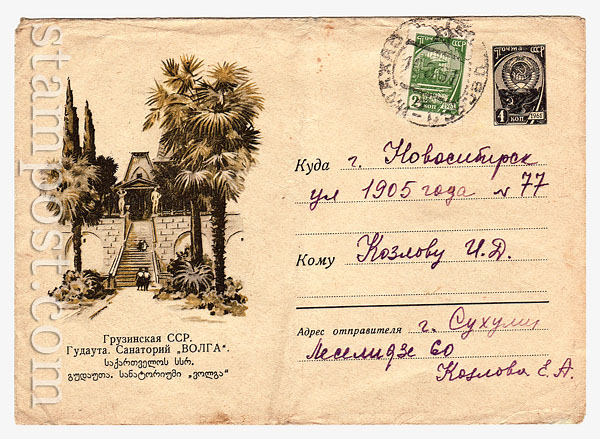 stampost.com.ru
ПОЧТА СССР
2 КОП
ПОЧТА СССР
4 КОП.
Куда г. Новосибирск
ул 1905 года № 77
Кому Козлову И. Д.
Адрес отправителя г. Сухуми
Леселидзе 60
Козлова Е. А.
Грузинская ССР.
Гудаута. Санаторий „ВОЛГА“.
საქართველოს სსრ.
გუდაუთა. სანატორიუმი „ვოლგა“